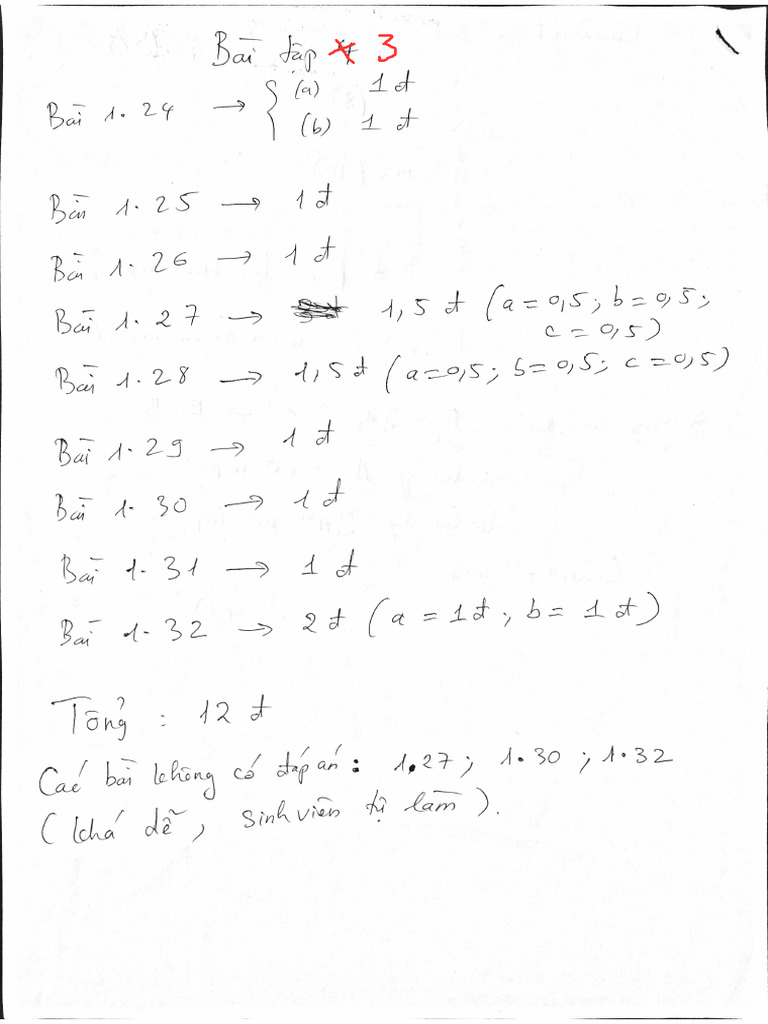 Bài tập 3
Bài 1.24 → { (a) 1đ
(b) 1đ
Bài 1.25 → 1đ
Bài 1.26 → 1đ
Bài 1.27 → 1,5đ (a=0,5; b=0,5;
c=0,5)
Bài 1.28 → 1,5đ (a=0,5; b=0,5; c=0,5)
Bài 1.29 → 1đ
Bài 1.30 → 1đ
Bài 1.31 → 1đ
Bài 1.32 → 2đ (a = 1đ; b = 1đ)
Tổng : 12đ
Các bài không có đáp án: 1.27; 1.30; 1.32
(khá dễ, sinh viên tự làm).